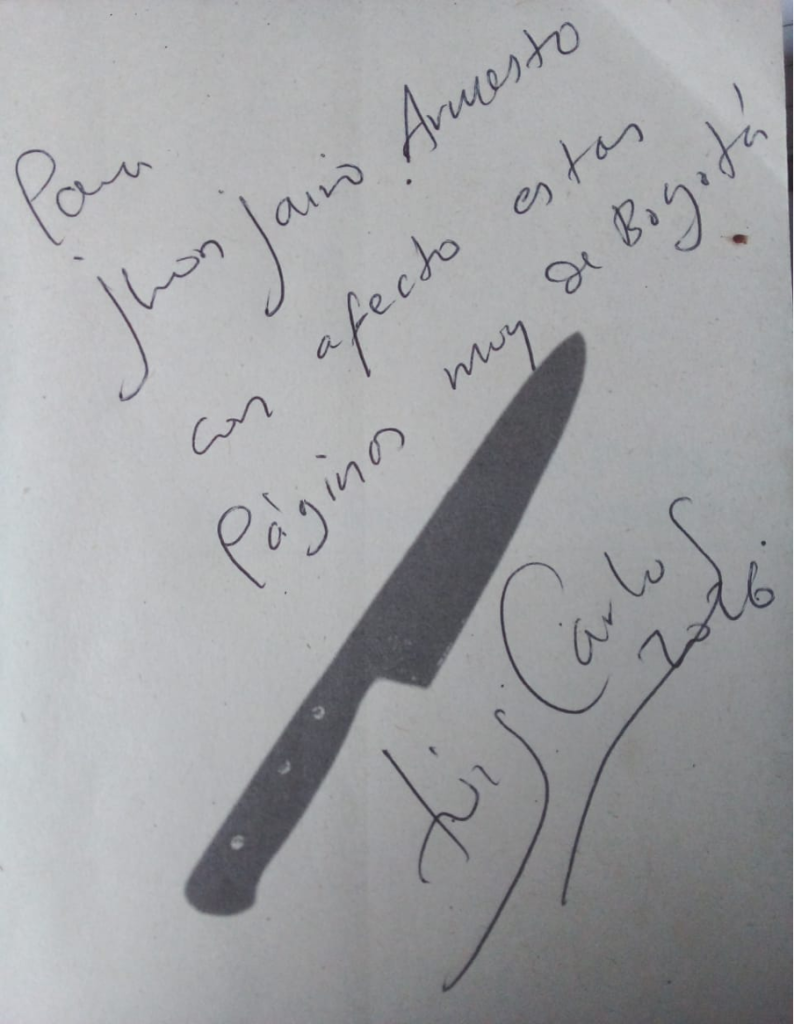 Para
Jhon Jairo Armesto
con afecto estas
Páginas muy de Bogotá
Luis Carlos
2016